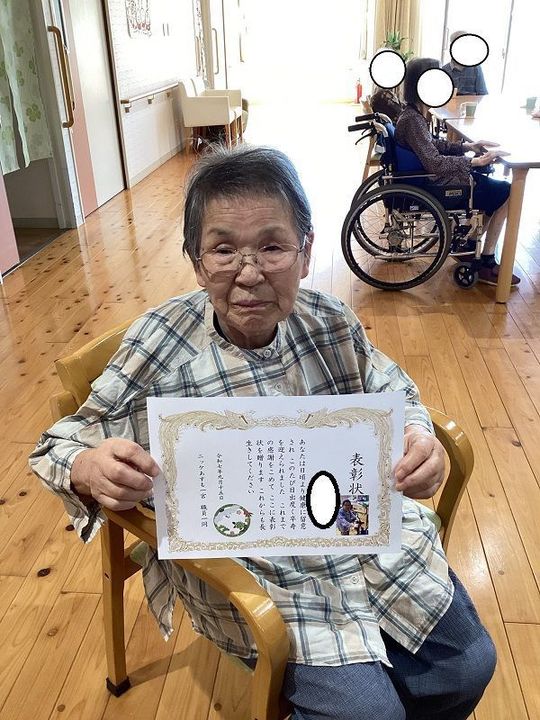 表彰状
あなたは日頃より健康に留意
され このたび目出度く卒寿
を迎えられました これまで
の感謝をこめて ここに表彰
状を贈ります これからも長
生きしてください
令和七年九月十五日
ニッケあすも一宮 職員一同